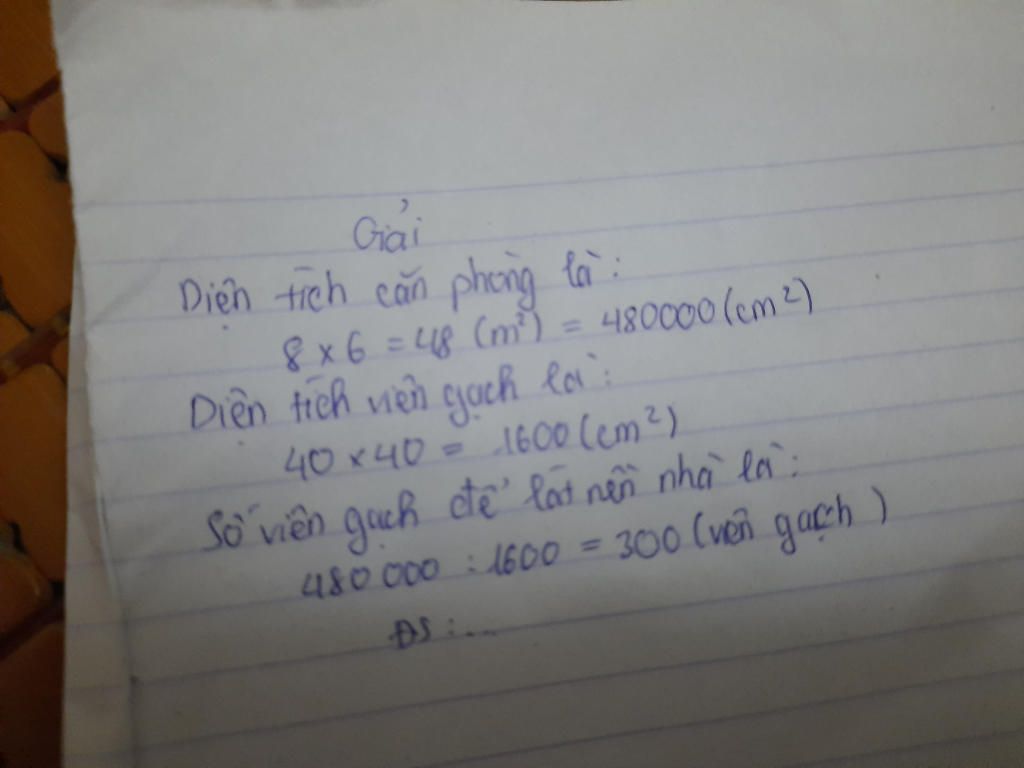 Giải
Diện tích căn phòng là:
8 x 6 = 48 (m²) = 480000 (cm²)
Diện tích viên gạch là:
40 x 40 = 1600 (cm²)
Số viên gạch để lát nền nhà là:
480 000 : 1600 = 300 (viên gạch)
ĐS : ...